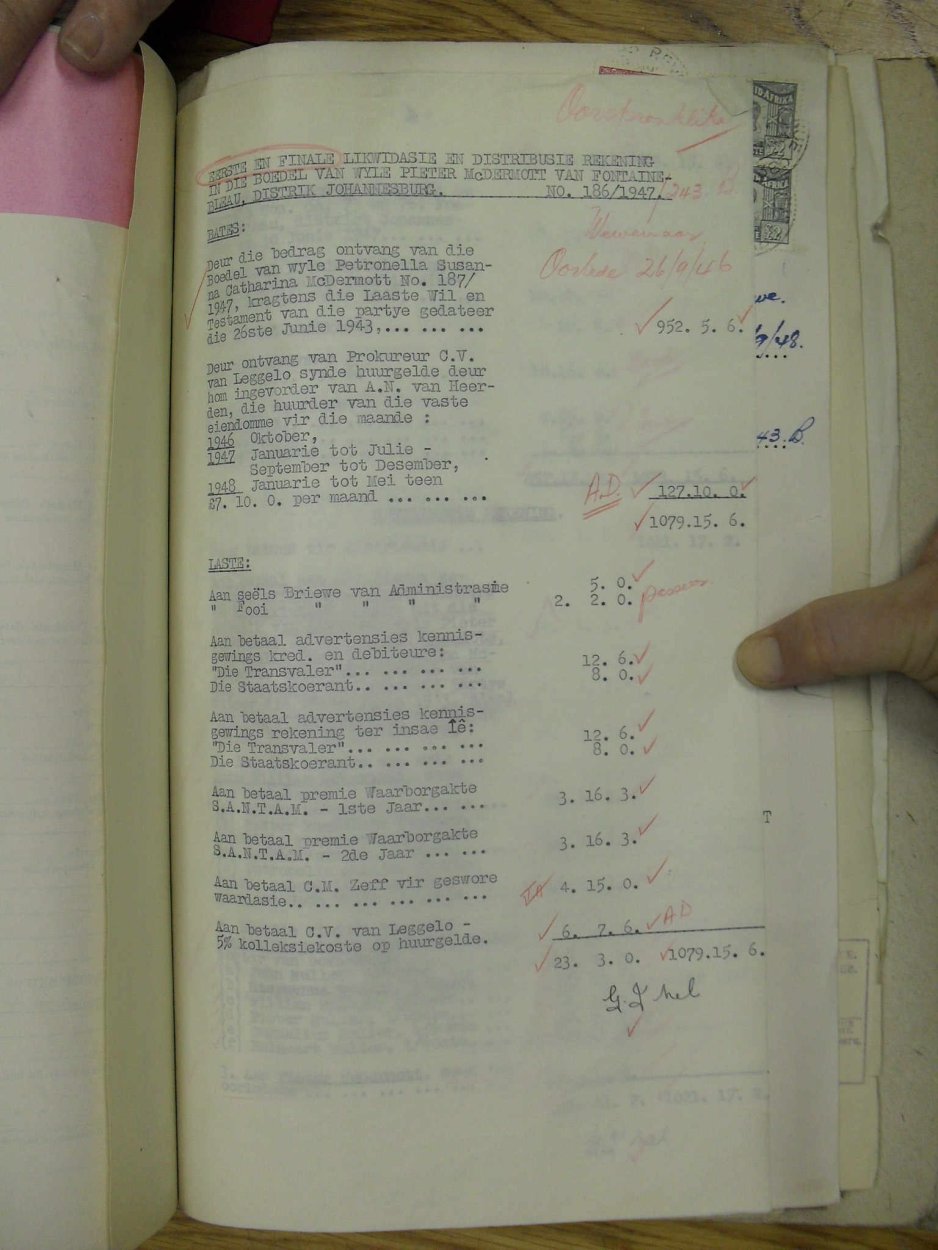 Oorspronklike
EERSTE EN FINALE LIKWIDASIE EN DISTRIBUSIE REKENING
IN DIE BOEDEL VAN WYLE PIETER McDERMOTT VAN FONTAINE-
BLEAU, DISTRIK JOHANNESBURG. NO. 186/1947. 1243 B
Wewenaar
Oorlede 26/9/46
BATES:
Deur die bedrag ontvang van die
Boedel van wyle Petronella Susan-
na Catharina McDermott No. 187/
1947, kragtens die Laaste Wil en
Testament van die partye gedateer
die 26ste Junie 1943,... ... ... 952. 5. 6.
we.
9/48.
Deur ontvang van Prokureur C.V.
van Leggelo synde huurgelde deur
hom ingevorder van A.N. van Heer-
den, die huurder van die vaste
eiendomme vir die maande :
1946 Oktober,
1947 Januarie tot Julie -
September tot Desember,
43.B.
1948 Januarie tot Mei teen
£7. 10. 0. per maand ... ... ... A.D. 127.10. 0.
1079.15. 6.
LASTE:
Aan seëls Briewe van Administrasie 5. 0.
" Fooi " " " " 2. 2. 0.
Aan betaal advertensies kennis-
gewings kred. en debiteure:
"Die Transvaler"... ... ... ... 12. 6.
Die Staatskoerant.. ... ... ... 8. 0.
Aan betaal advertensies kennis-
gewings rekening ter insae lê:
"Die Transvaler"... ... ... ... 12. 6.
Die Staatskoerant.. ... ... ... 8. 0.
Aan betaal premie Waarborgakte
S.A.N.T.A.M. - 1ste Jaar... ... 3. 16. 3.
T
Aan betaal premie Waarborgakte
S.A.N.T.A.M. - 2de Jaar ... ... 3. 16. 3.
Aan betaal C.M. Zeff vir geswore
waardasie.. ... ... ... ... ... 4. 15. 0.
Aan betaal C.V. van Leggelo -
5% kolleksiekoste op huurgelde. 6. 7. 6. AD
23. 3. 0. 1079.15. 6.